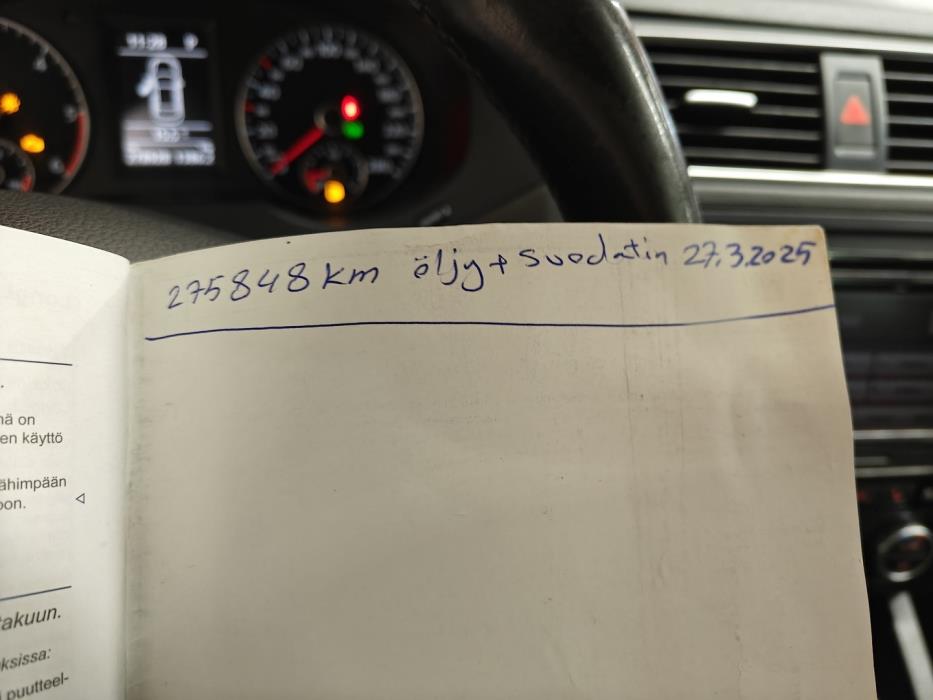 275848 km öljy + suodatin 27.3.2025
nä on
en käyttö
ähimpään
oon.
takuun.
ksissa:
puutteel-